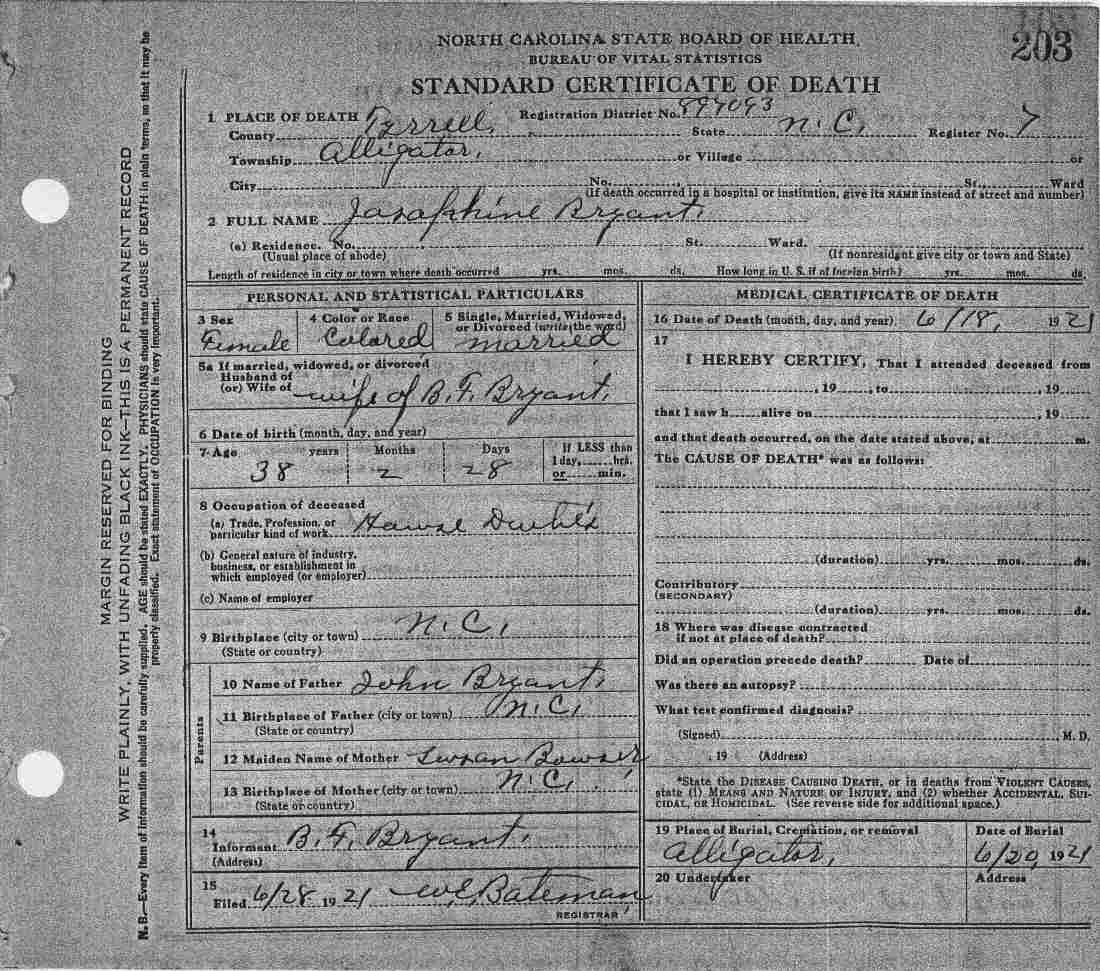 203
NORTH CAROLINA STATE BOARD OF HEALTH
BUREAU OF VITAL STATISTICS
STANDARD CERTIFICATE OF DEATH
1 PLACE OF DEATH Registration District No. 897093
County Tyrrell, State N. C. Register No. 7
Township Alligator, or Village or
City No. St., Ward
(If death occurred in a hospital or institution, give its NAME instead of street and number)
2 FULL NAME Josephine Bryant,
(a) Residence. No. St. Ward.
(Usual place of abode) (If nonresident give city or town and State)
Length of residence in city or town where death occurred yrs. mos. ds. How long in U. S. if of foreign birth? yrs. mos. ds.
PERSONAL AND STATISTICAL PARTICULARS
3 Sex 4 Color or Race 5 Single, Married, Widowed,
or Divorced (write the word)
Female Colored married
5a If married, widowed, or divorced
Husband of
(or) Wife of wife of B. F. Bryant,
6 Date of birth (month, day, and year)
7 Age years Months Days If LESS than
1 day, hrs.
or min.
38 2 28
8 Occupation of deceased
(a) Trade, Profession, or
particular kind of work Hawse
(b) General nature of industry,
business, or establishment in
which employed (or employer)
(c) Name of employer
9 Birthplace (city or town) N. C.
(State or country)
Parents
10 Name of Father John Bryant,
11 Birthplace of Father (city or town) N. C.
(State or country)
12 Maiden Name of Mother Susan Bowser,
13 Birthplace of Mother (city or town) N. C.
(State or country)
14
Informant B. F. Bryant,
(Address)
15
Filed 6/28 1921 W E Bateman
REGISTRAR
MEDICAL CERTIFICATE OF DEATH
16 Date of Death (month, day, and year) 6/18, 1921
17
I HEREBY CERTIFY, That I attended deceased from
, 19 , to , 19
that I saw h alive on , 19
and that death occurred, on the date stated above, at m.
The CAUSE OF DEATH* was as follows:
(duration) yrs. mos. ds.
Contributory
(SECONDARY)
(duration) yrs. mos. ds.
18 Where was disease contracted
if not at place of death?
Did an operation precede death? Date of
Was there an autopsy?
What test confirmed diagnosis?
(Signed) M. D.
, 19 (Address)
*State the DISEASE CAUSING DEATH, or in deaths from VIOLENT CAUSES,
state (1) MEANS AND NATURE OF INJURY, and (2) whether ACCIDENTAL, SUI-
CIDAL, OR HOMICIDAL. (See reverse side for additional space.)
19 Place of Burial, Cremation, or removal Date of Burial
Alligator, 6/20, 1921
20 Undertaker Address
MARGIN RESERVED FOR BINDING
WRITE PLAINLY, WITH UNFADING BLACK INK—THIS IS A PERMANENT RECORD
N. B.—Every item of information should be carefully supplied. AGE should be stated EXACTLY. PHYSICIANS should state CAUSE OF DEATH in plain terms, so that it may be
properly classified. Exact statement of OCCUPATION is very important.